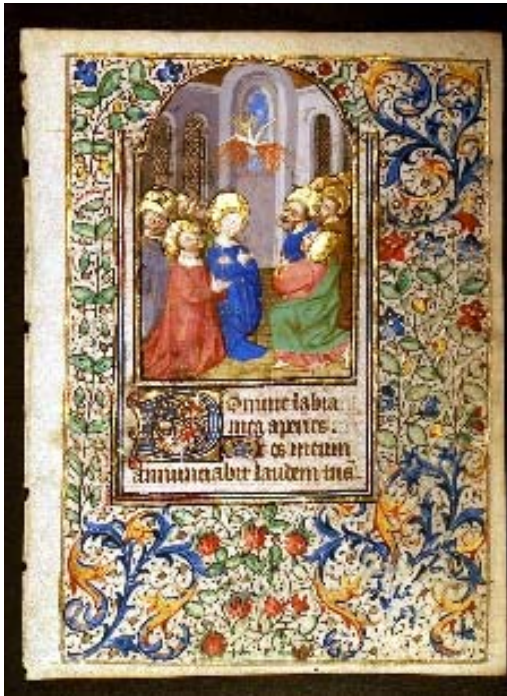 Domine labia
mea aperies.
Et os meum
annunciabit laudem tuā.